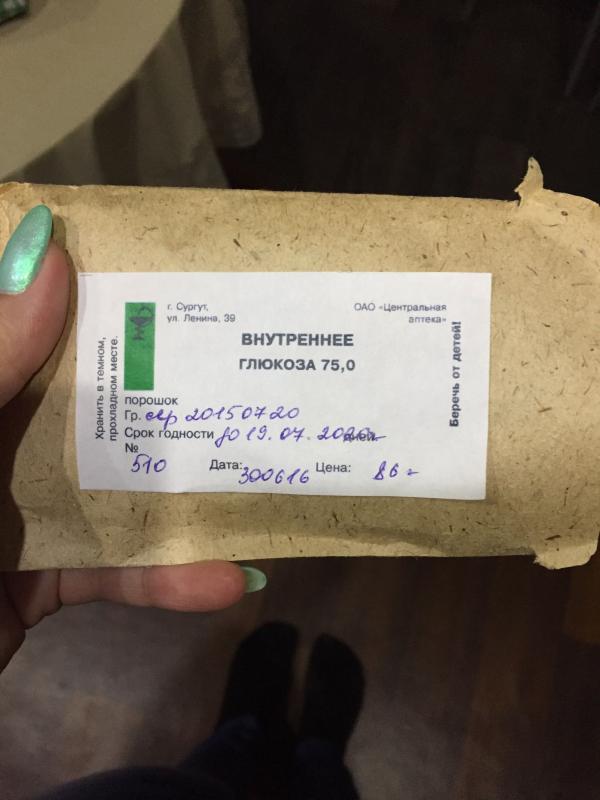 г. Сургут,
ул. Ленина, 39
ОАО «Центральная
аптека»
ВНУТРЕННЕЕ
ГЛЮКОЗА 75,0
Хранить в темном,
прохладном месте.
Беречь от детей!
порошок
Гр. сер 20150720
Срок годности до 19.07.2020г дней
№ 510 Дата: 300616 Цена: 86=